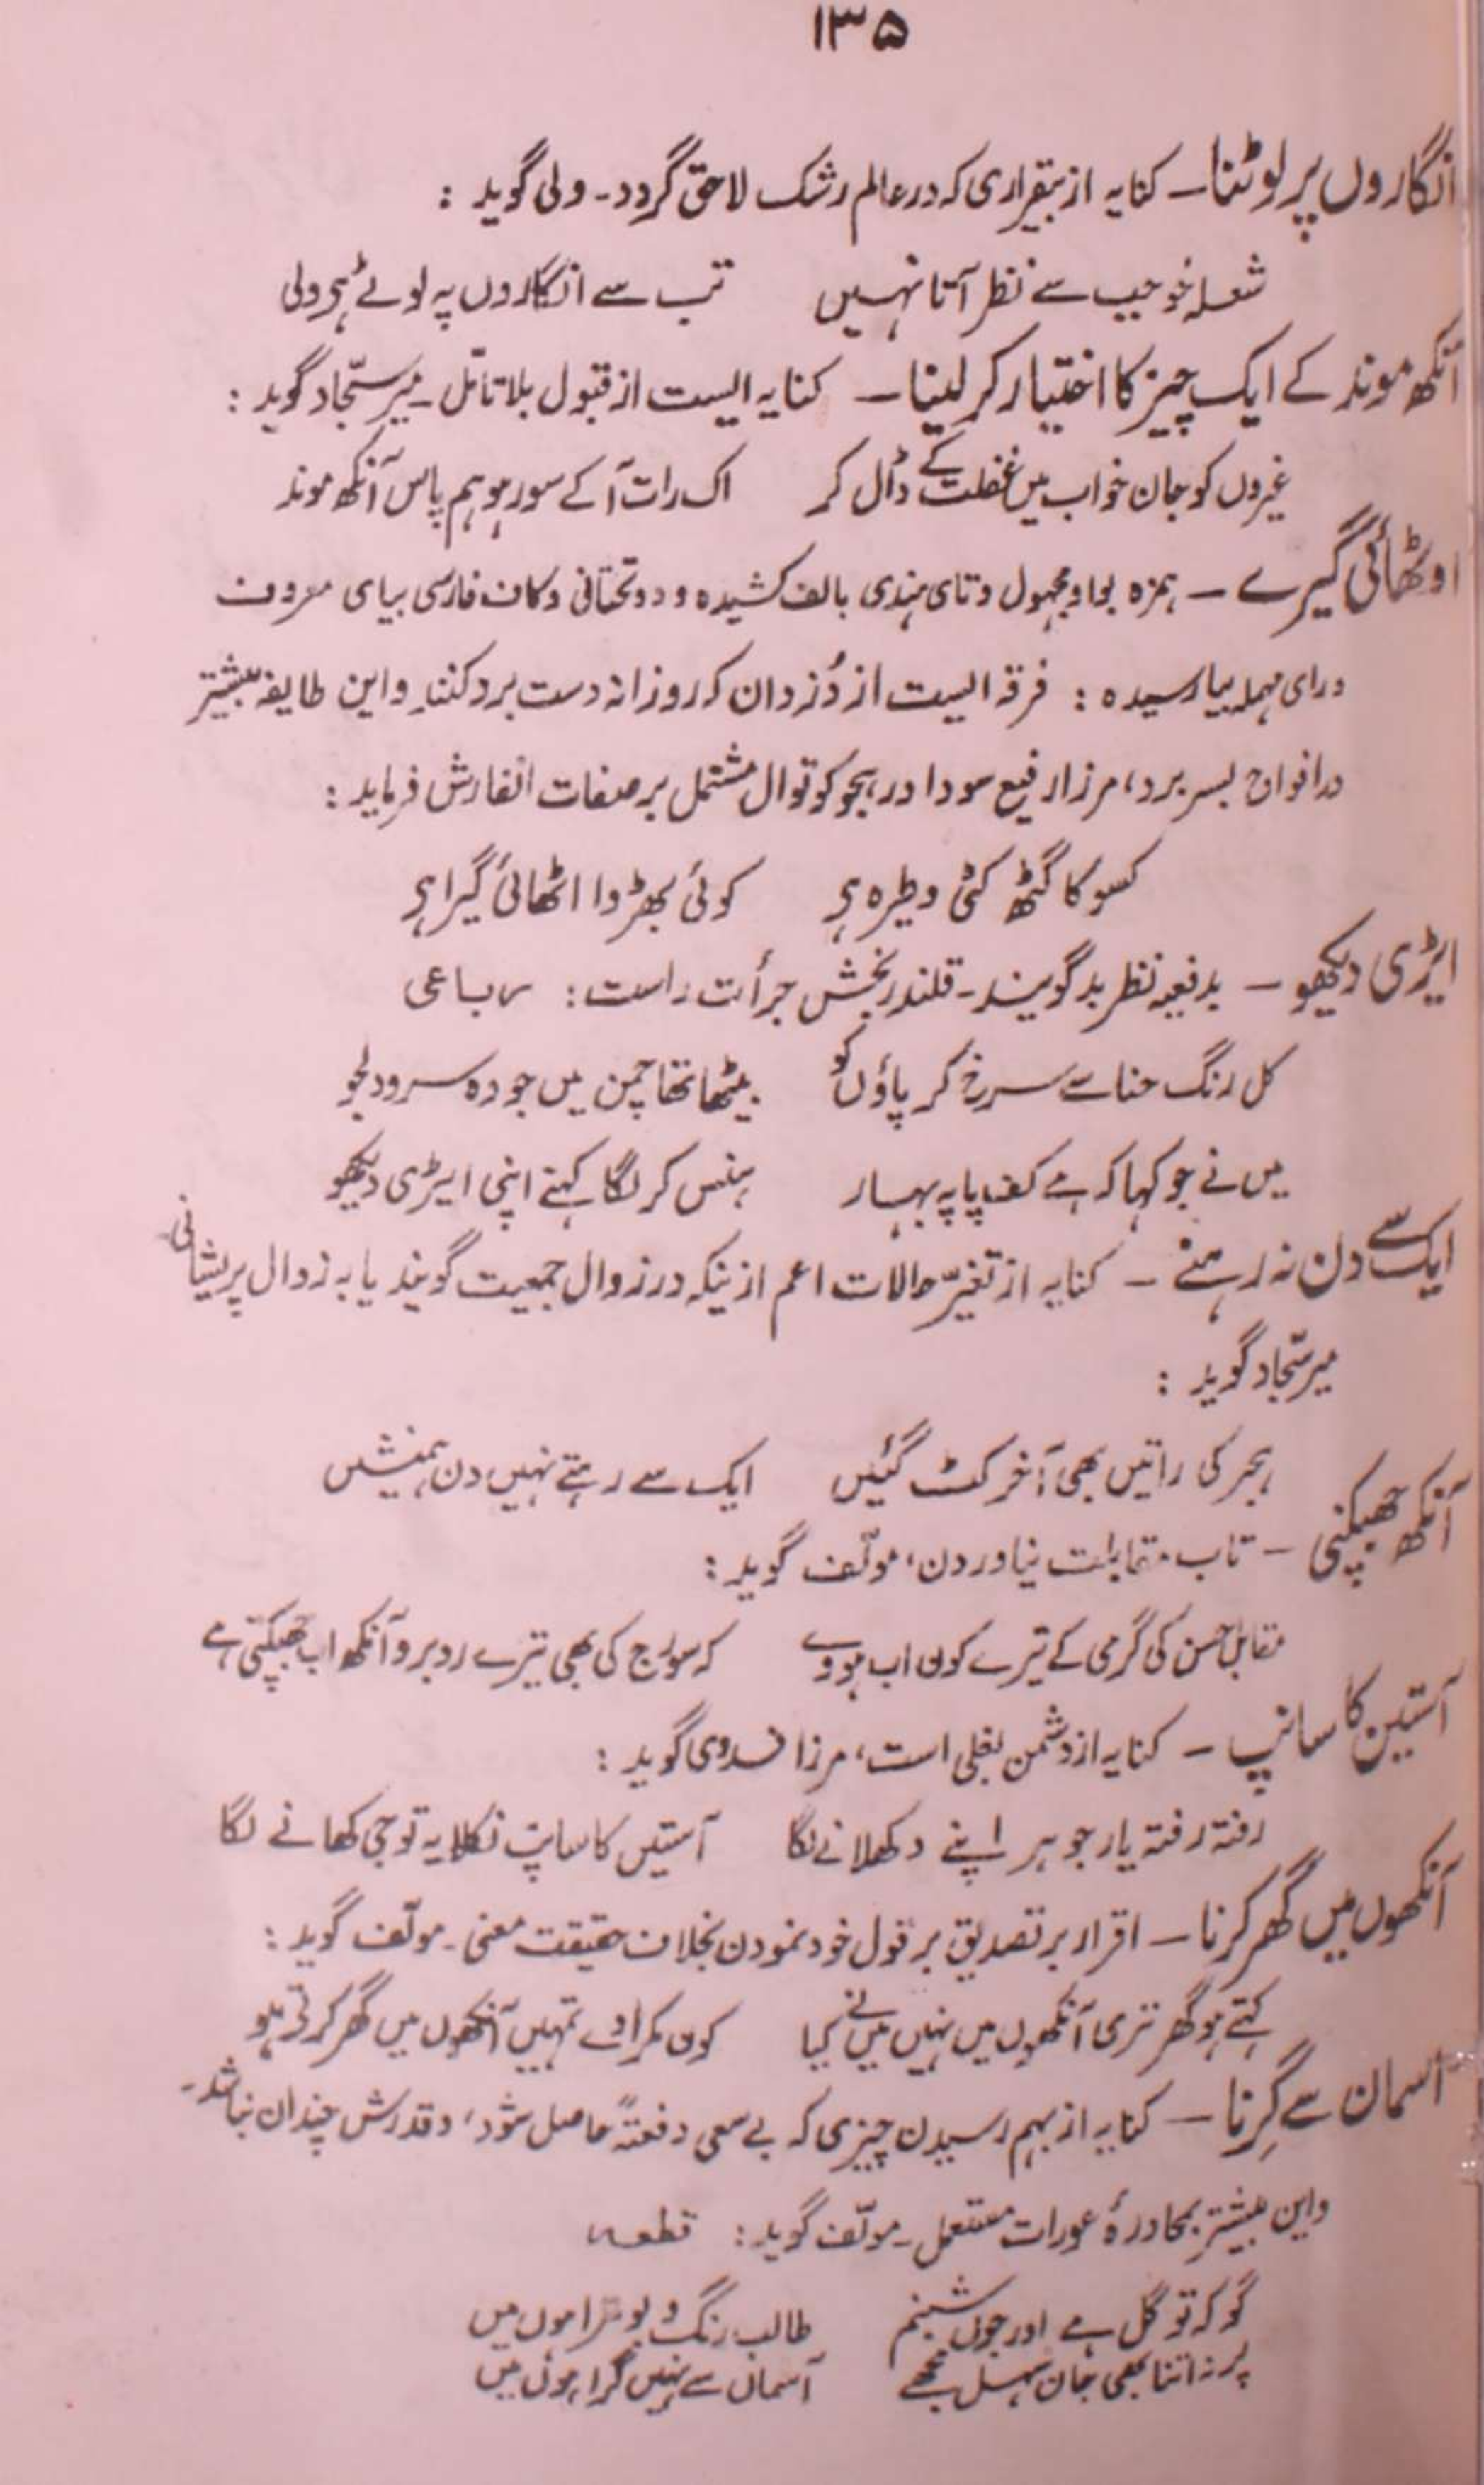 ۱۳۵
انگاروں پر لوٹنا ـ کنایہ از بیقراری کہ در عالم رشک لاحق گردد ـ ولی گوید :
شعلہ خو جب سے نظر آتا نہیں تب سے انگاروں پہ لوٹے ہی ولی
آنکھ موند کے ایک چیز کا اختیار کر لینا ـ کنایہ ایست از قبول بلا تامّل ـ میر سجّاد گوید :
غیروں کو جان خواب میں غفلت کے ڈال کر اک رات آ کے سو رہو ہم پاس آنکھ موند
اوٹھائی گیرے ـ ہمزہ بواو مجہول و تای ہندی بالف کشیدہ و دو تحتانی و کاف فارسی بیای معروف
ورای مہملہ بیا رسیدہ : فرقہ ایست از دُزدان کہ روزانہ دست برد کنند واین طایفہ بیشتر
در افواج بسر برد، مرزا رفیع سودا در ہجو کوتوال مشتمل بر صفات انفارش فرماید :
کسو کا گٹھ کٹی وطیرہ ہی کوئی بھڑوا اٹھائی گیرا ہی
ایڑی دیکھو ـ بدفعیہ نظر بد گویند ـ قلندر بخش جرأت راست : رباعی
کل رنگ حنا سے سرخ کر پاؤں کو بیٹھا تھا چمن میں جو وہ سرو دلجو
میں نے جو کہا کہ ہے کف پا پہ بہار ہنس کر لگا کہنے اپنی ایڑی دیکھو
ایک سے دن نہ رہنے ـ کنایہ از تغیّر حالات اعم ازینکہ در زوال جمعیت گویند یا بہ زوال پریشانی
میر سجّاد گوید :
ہجر کی راتیں بھی آخر کٹ گئیں ایک سے رہتے نہیں دن ہمنشیں
آنکھ جھپکنی ـ تاب مقابلت نیاوردن، مولّف گوید :
مقابل حسن کی گرمی کے تیرے کون اب ہووے کہ سورج کی بھی تیرے روبرو آنکھ اب جھپکتی ہے
آستین کا سانپ ـ کنایہ از دشمن بغلی است، مرزا فدوی گوید :
رفتہ رفتہ یار جوہر اپنے دکھلانے لگا آستیں کا سانپ نکلا یہ تو جی کھانے لگا
آنکھوں میں گھر کرنا ـ اقرار بر تصدیق بر قول خود نمودن بخلاف حقیقت معنی ـ مولّف گوید :
کہتے ہو گھر تری آنکھوں میں نہیں میں نے کیا کون مکرا وے تمہیں آنکھوں میں گھر کرتی ہو
آسمان سے گِرنا ـ کنایہ از بہم رسیدن چیزی کہ بے سعی دفعتہً حاصل شود، و قدرش چندان نباشد ـ
واین بیشتر بمحاورۂ عورات مستعمل ـ مولّف گوید : قطعہ
گو کہ تو گل ہے اور جوں شبنم طالب رنگ و بو ترا ہوں میں
پر نہ اتنا بھی جان سہل مجھے آسمان سے نہیں گرا ہوں میں